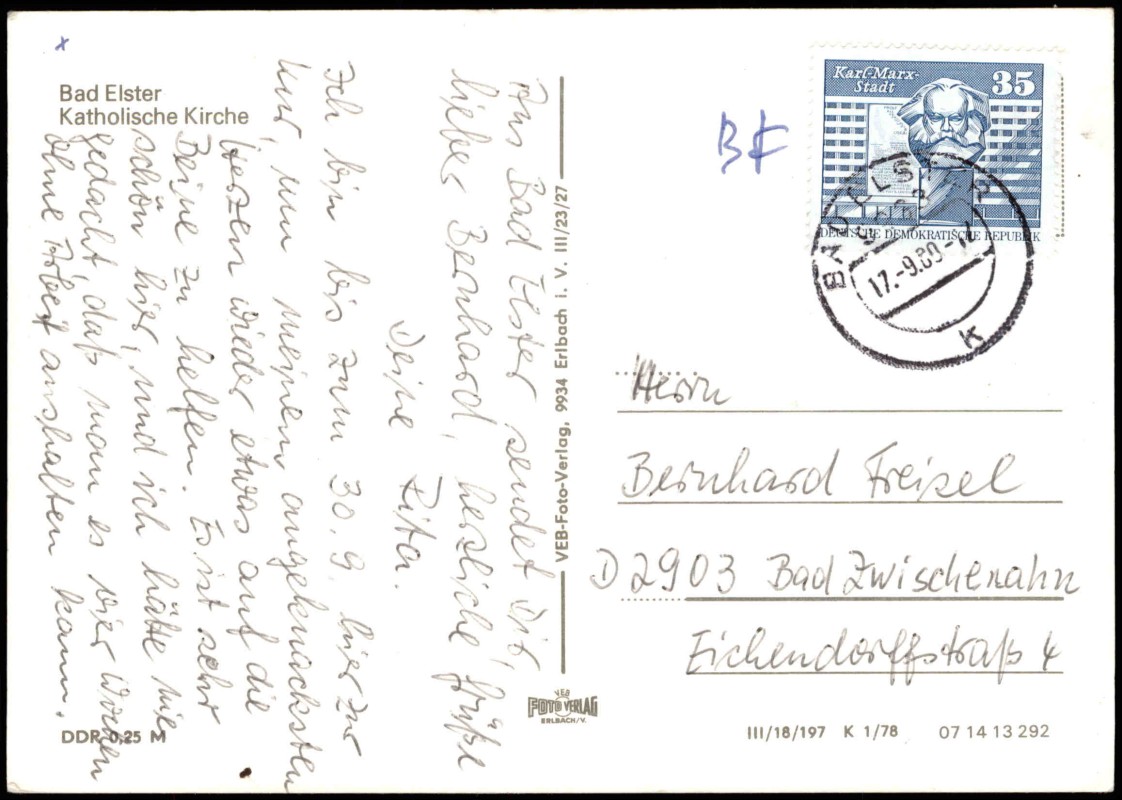 x
Bad Elster
Katholische Kirche
Karl-Marx-
Stadt
35
DEUTSCHE DEMOKRATISCHE REPUBLIK
BAD ELSTER
9933
17.-9.80-12
k
BF
Aus Bad Elster sendet Dir,
lieber Bernhard, herzliche Grüße
Deine Rita.
Ich bin bis zum 30.9. hier zur
Kur, um meinem angeknacksten
Herzen wieder etwas auf die
Beine zu helfen. Es ist sehr
schön hier, und ich hätte nie
gedacht, daß man es vier Wochen
ohne Arbeit aushalten kann.
VEB-Foto-Verlag, 9934 Erlbach i. V. III/23/27
Herrn
Bernhard Freisel
D 2903 Bad Zwischenahn
Eichendorffstraß 4
VEB
FOTO VERLAG
ERLBACH/V.
DDR 0,25 M
III/18/197 K 1/78 07 14 13 292